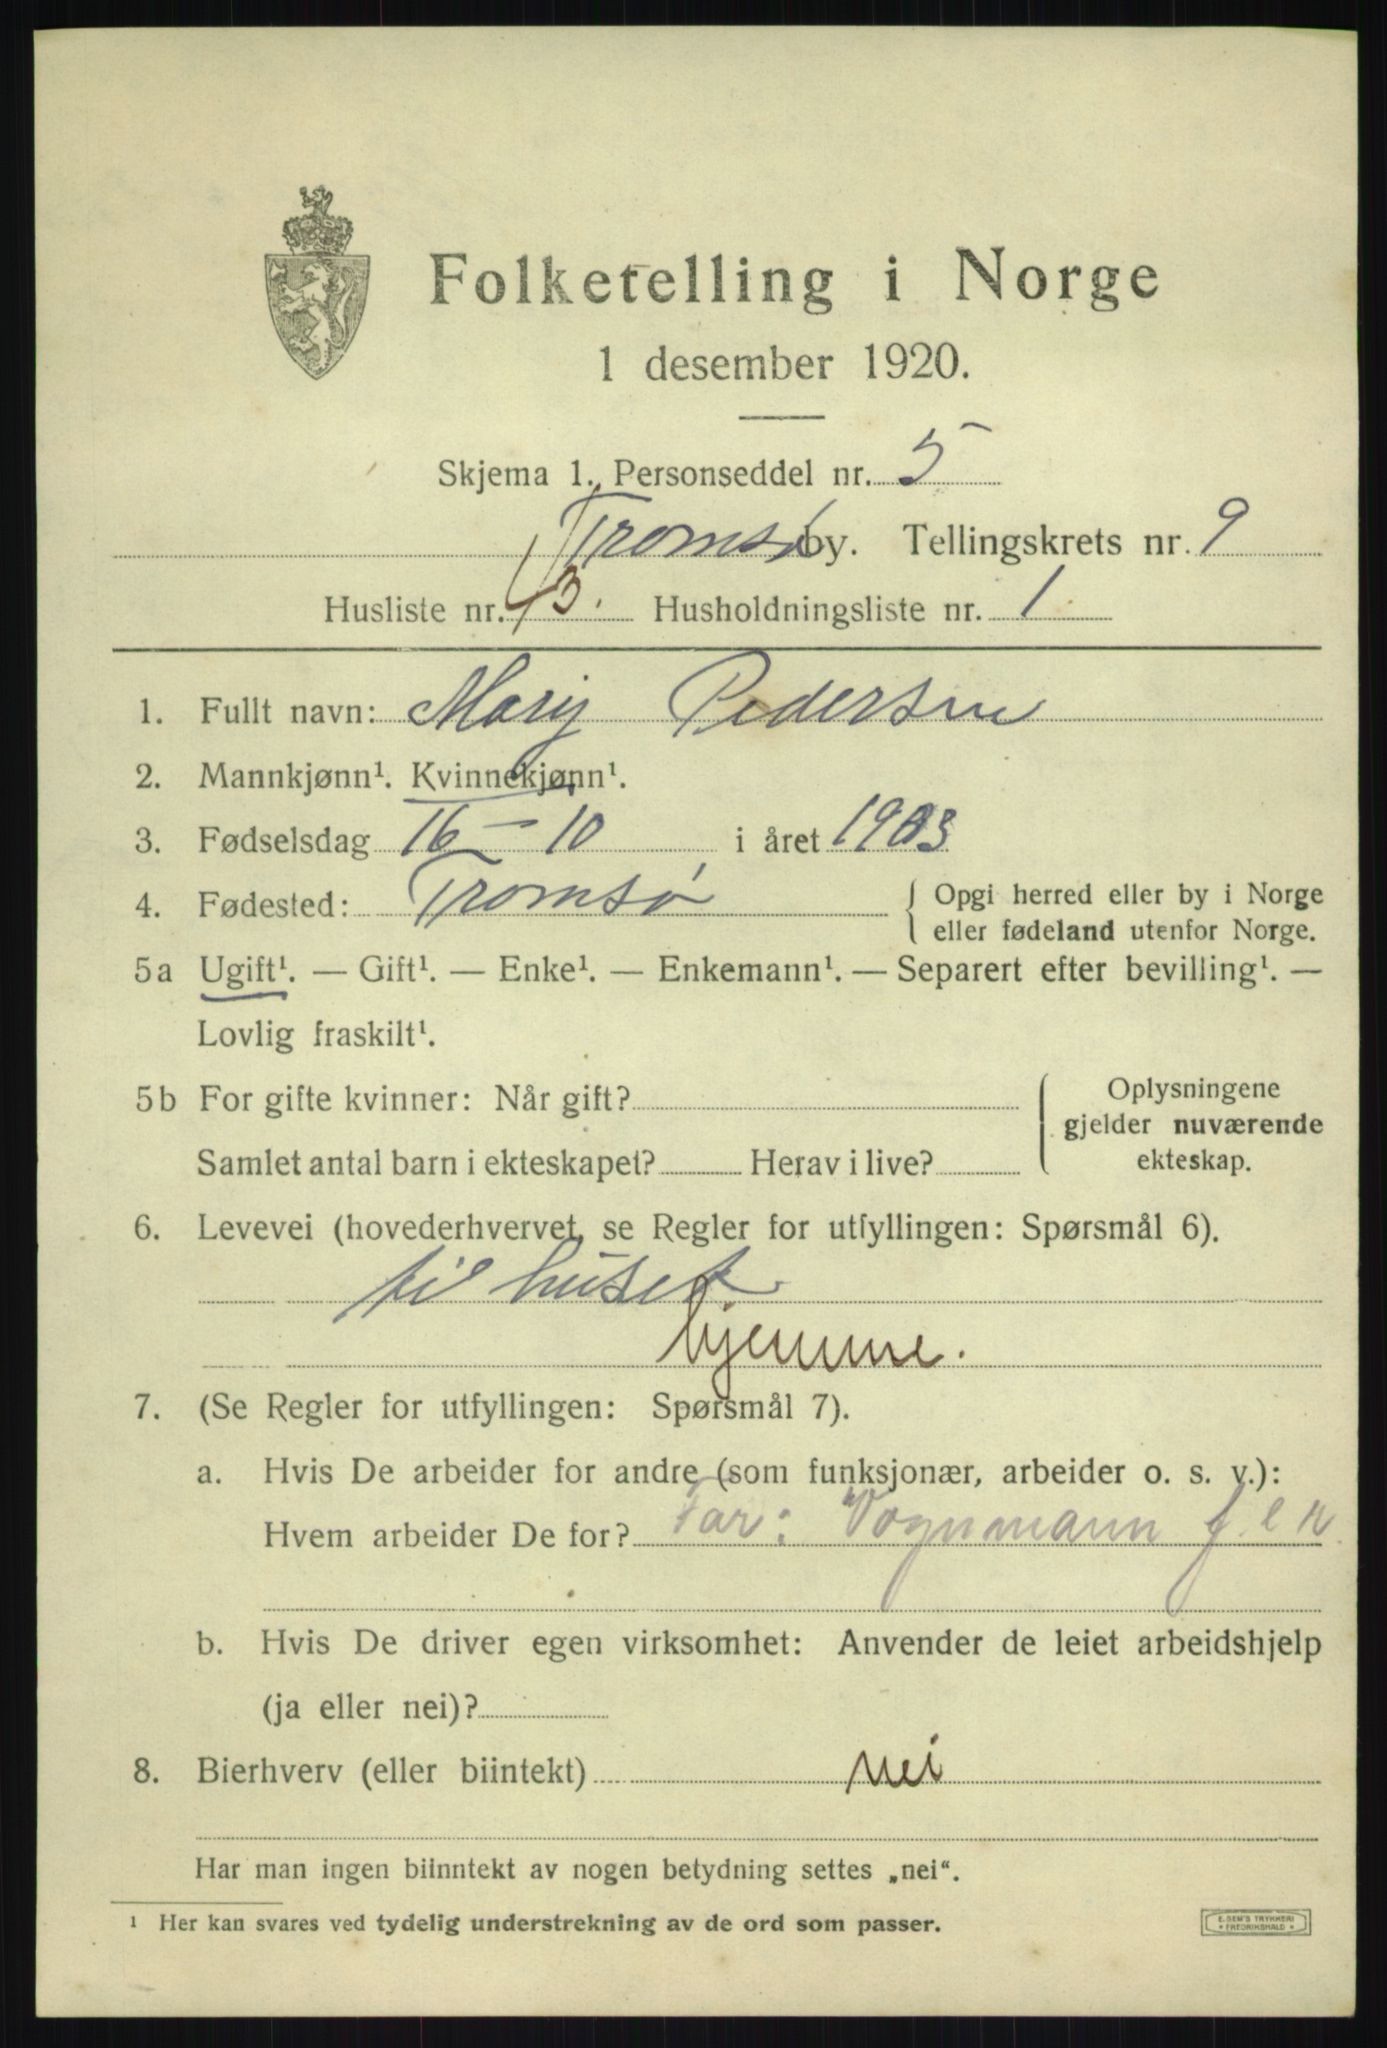 Folketelling i Norge
1 desember 1920.
Skjema 1. Personseddel nr. 5
Tromsø by. Tellingskrets nr. 9
Husliste nr. 43. Husholdningsliste nr. 1.
1. Fullt navn: Mary Pedersen
2. Mannkjønn¹. Kvinnekjønn¹.
3. Fødselsdag 16 – 10 i året 1903
4. Fødested: Tromsø { Opgi herred eller by i Norge
eller fødeland utenfor Norge.
5a Ugift¹. — Gift¹. — Enke¹. — Enkemann¹. — Separert efter bevilling¹. —
Lovlig fraskilt¹.
5b For gifte kvinner: Når gift? { Oplysningene
gjelder nuværende
Samlet antal barn i ekteskapet? Herav i live? ekteskap.
6. Levevei (hovederhvervet, se Regler for utfyllingen: Spørsmål 6).
til huset
hjemme.
7. (Se Regler for utfyllingen: Spørsmål 7).
a. Hvis De arbeider for andre (som funksjonær, arbeider o. s. v.):
Hvem arbeider De for? Far: Vognmann f.e.r
b. Hvis De driver egen virksomhet: Anvender de leiet arbeidshjelp
(ja eller nei)?
8. Bierhverv (eller biintekt) nei
Har man ingen biinntekt av nogen betydning settes „nei“.
¹ Her kan svares ved tydelig understrekning av de ord som passer.
E. SEM'S TRYKKERI
• FREDRIKSHALD •